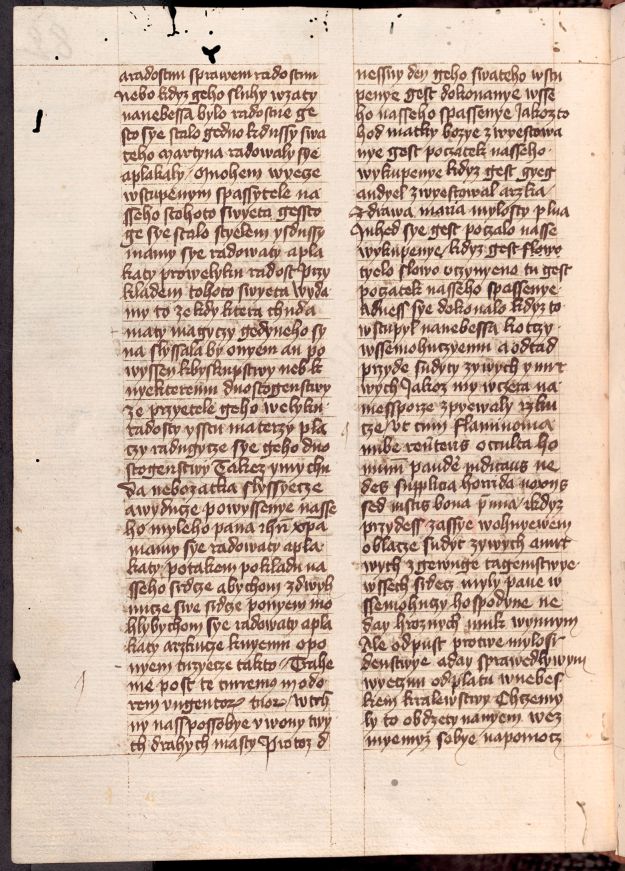 aradostmi sprawem radostmi
nebo kdyz geho sluhy wzaty
nanebessa bylo radostne ge
sto sye stalo gedno kdussy swa
teho Martyna radowaly sye
aplakaly Omohem wyece
wstupenym spassytele na
sseho stohoto swyeta gessto
ge sye stalo styelem ysdussy
mamy sye radowaty apla
katy prowelyku radost Przy
kladem tohoto swyeta wyda
my to ze kdy ktera chuda
maty magyczy gedyneho sy
na slyssala by onyem an po
wyssen kbyskupstwy neb k
nyekteremu duostogenstwy
ze przyetele geho welyku
radosty yssu materzy pla
czy radugycze sye geho duo
stogenstwy Takez ymy chu
da nebozatka slyssyecze
awyduze powyssenye nasse
ho myleho pana ihu xpa
mamy sye radowaty apla
katy potakem pokladu na
sseho srdcze abychom zdwyh
nucze swe srdcze ponyem mo
hlybychom sye radowaty apla
katy arzkucze knyemu opo
nyem tuzyecze takto Trahe
me post te curremus in odo
rem ungentor tuor wtrh
ny nass possobye uwony twy
ch drahych masty Protoz d
nessny den geho swateho wstu
penye gest dokonanye wsse
ho nasseho spassenye Jakozto
hod matky bozye zwyestowa
nye gest poczatek nasseho
wykupenye kdyz gest gyeg
andyel zwyestowal arzka
zdrawa maria mylosty plna
Inhed sye gest poczalo nasse
wykupenye kdyz gest slowo
tyelo slowo uczynyeno tu gest
poczatek nasseho spassenye
Adness sye dokonalo kdyz to
wstupyl nanebessa kotczy
wssemohuczyemu aodtad
przyde sudyty zywych ymrt
wych Jakoz my wczera na
nessporze zpyewaly rzku
cze ut cum flammoma
nube reuteris occulta ho
minu pande iudicans ne
des supplicia horrida noxys
sed iustis bona pmia kdyz
przydess zassye wohnyewem
oblacze sudyt zywych amrt
wych zgewuge tagemstwye
wssech srdecz myly pane w
ssemohuzy hospodyne ne
day hroznych muk wynnym
Ale odpust protwe mylosr
denstwye aday sprawedlywym
wyeczni odplatu wnebes
kem kralewstwy Chczemy
ly to obdrzety namyem wez
myemyz sobye napomocz